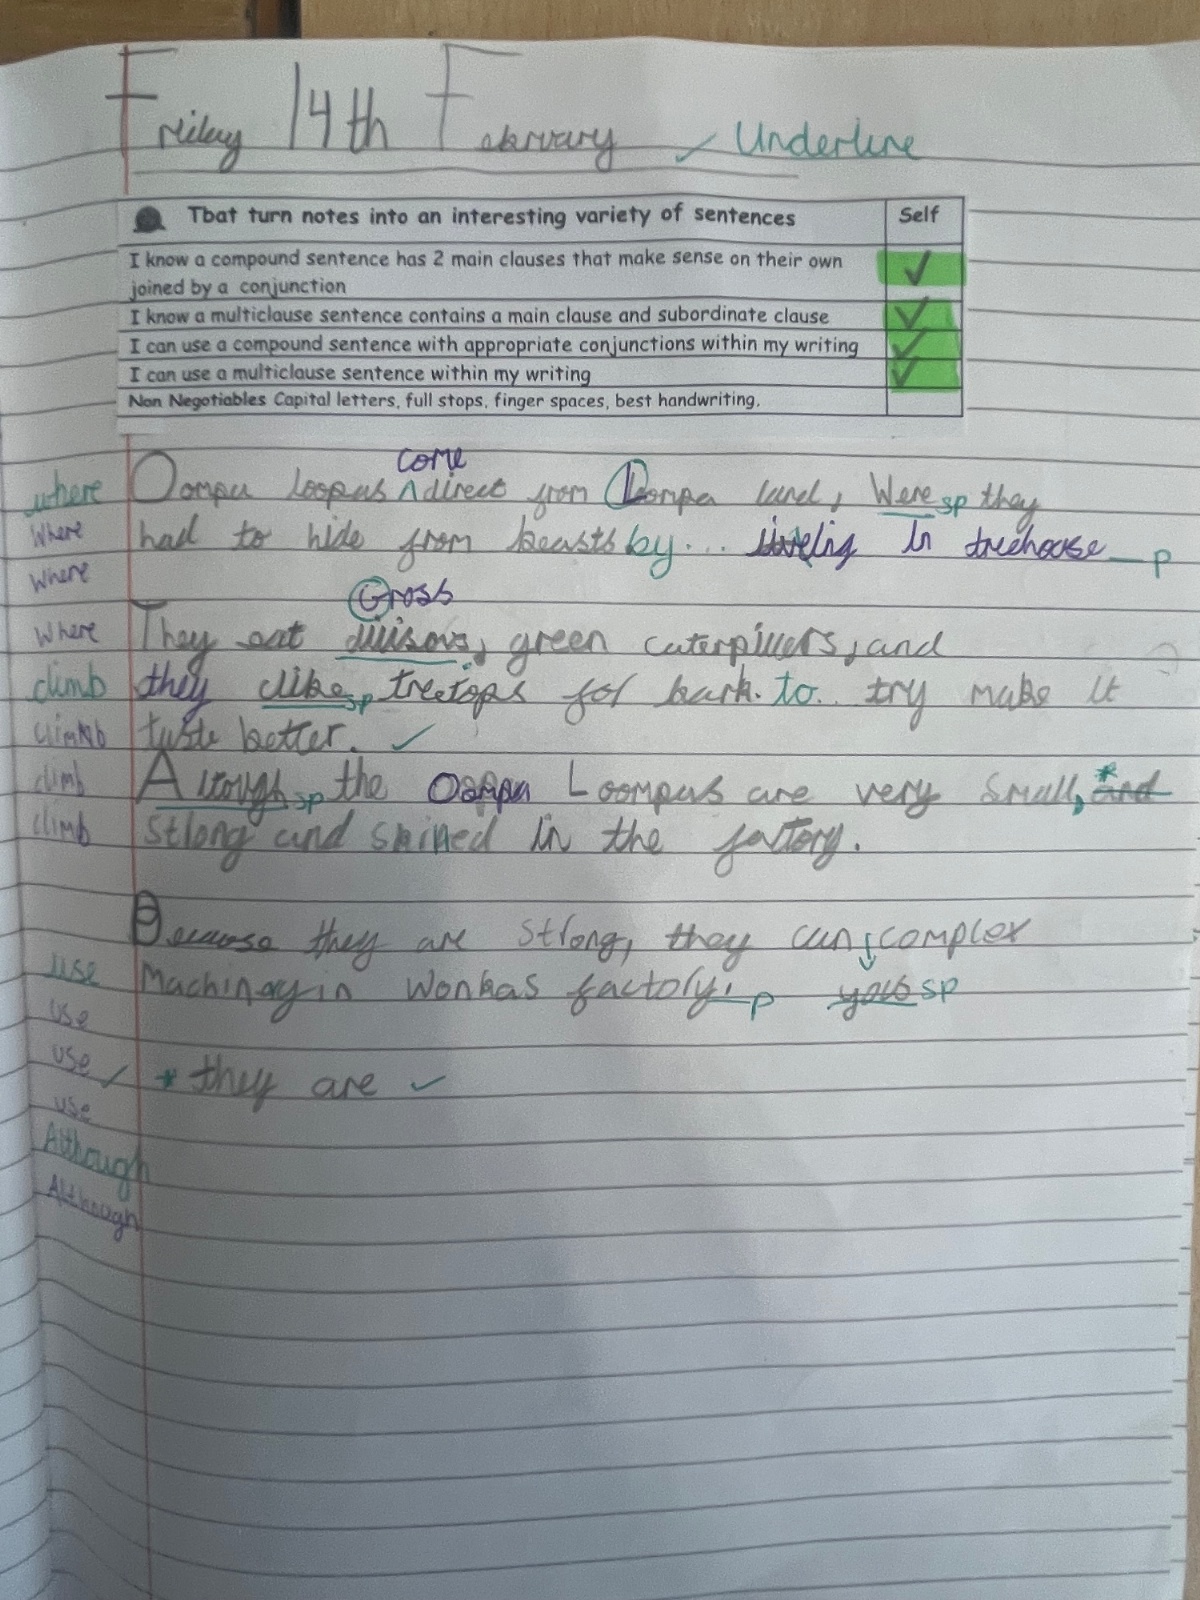 Friday 14th February ✓ Underline
Tbat turn notes into an interesting variety of sentences Self
I know a compound sentence has 2 main clauses that make sense on their own ✓
joined by a conjunction
I know a multiclause sentence contains a main clause and subordinate clause ✓
I can use a compound sentence with appropriate conjunctions within my writing ✓
I can use a multiclause sentence within my writing ✓
Non Negotiables Capital letters, full stops, finger spaces, best handwriting.
come
where Oompa loopas ^ direct from Loompa land, Were sp they
Where had to hide from beasts by... in treehoose p
Where
Gross
Where They eat green caterpillers, and
climb they clike sp treetops for bark. to.. try make it
climb taste better. ✓
climb Altough sp the Oompa Loompas are very small, * and
climb strong and skilled in the factory.
Because they are strong, they can complex
use Machinay in Wonkas factory. p yous sp
use
use ✓ * they are ✓
use
Although
Although